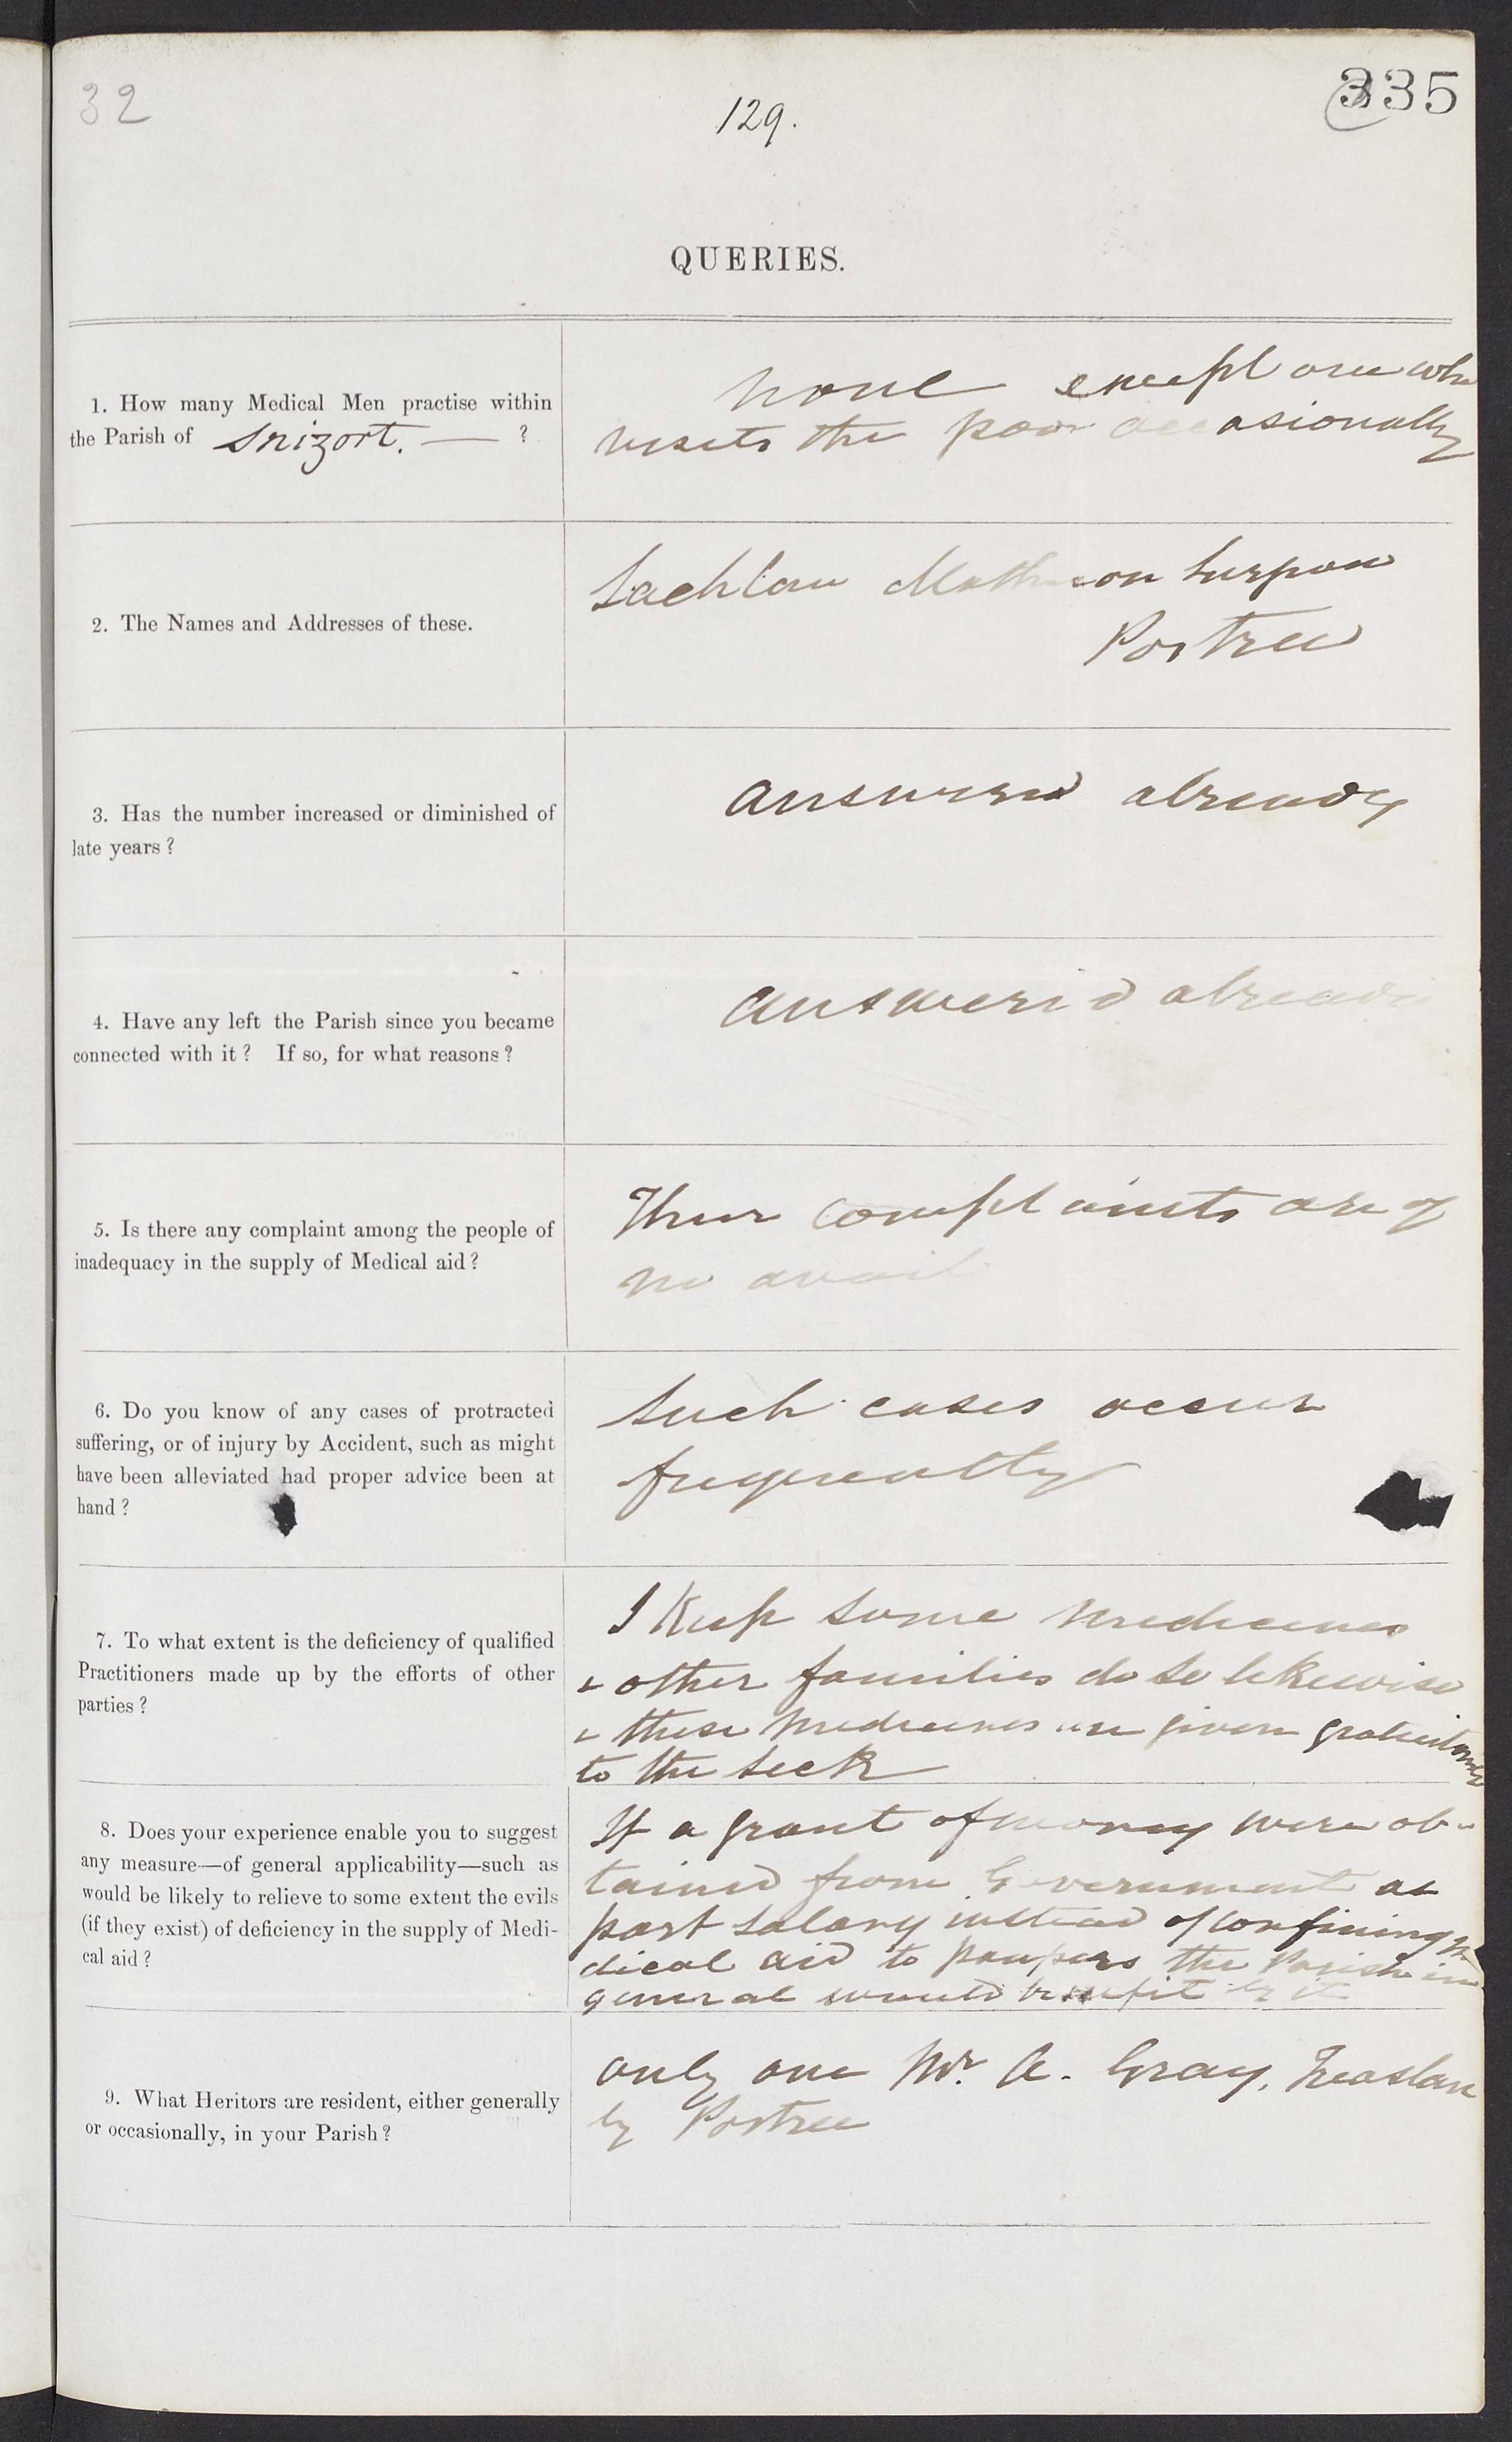 32
129.
335
QUERIES.
1. How many Medical Men practise within
the Parish of Snizort. — ?
none except one who
visits the poor occasionally
2. The Names and Addresses of these.
Lachlan Matheson Surgeon
Portree
3. Has the number increased or diminished of
late years ?
answered already
4. Have any left the Parish since you became
connected with it ? If so, for what reasons ?
answered already
5. Is there any complaint among the people of
inadequacy in the supply of Medical aid ?
Their complaints are of
no avail
6. Do you know of any cases of protracted
suffering, or of injury by Accident, such as might
have been alleviated had proper advice been at
hand ?
Such cases occur
frequently
7. To what extent is the deficiency of qualified
Practitioners made up by the efforts of other
parties ?
I Keep some medicines
& other families do so likewise
& these medicines are given gratuitously
to the sick
8. Does your experience enable you to suggest
any measure—of general applicability—such as
would be likely to relieve to some extent the evils
(if they exist) of deficiency in the supply of Medi-
cal aid ?
If a grant of money were ob-
tained from Government as
part salary instead of confining
dical aid to paupers the Parish in
general would benefit by it
9. What Heritors are resident, either generally
or occasionally, in your Parish ?
only one Mr. A. Gray, Treaslan
by Portree